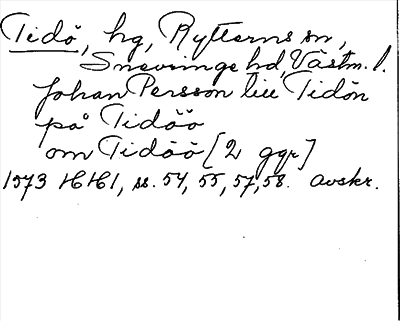 Tidö, hg, Rytterns sn,
Snevringe hd, Västm. l.
Johan Persson till Tidön
på Tidöö
om Tidöö [2 ggr]
1573 HH1, ss. 54, 55, 57, 58. Avskr.